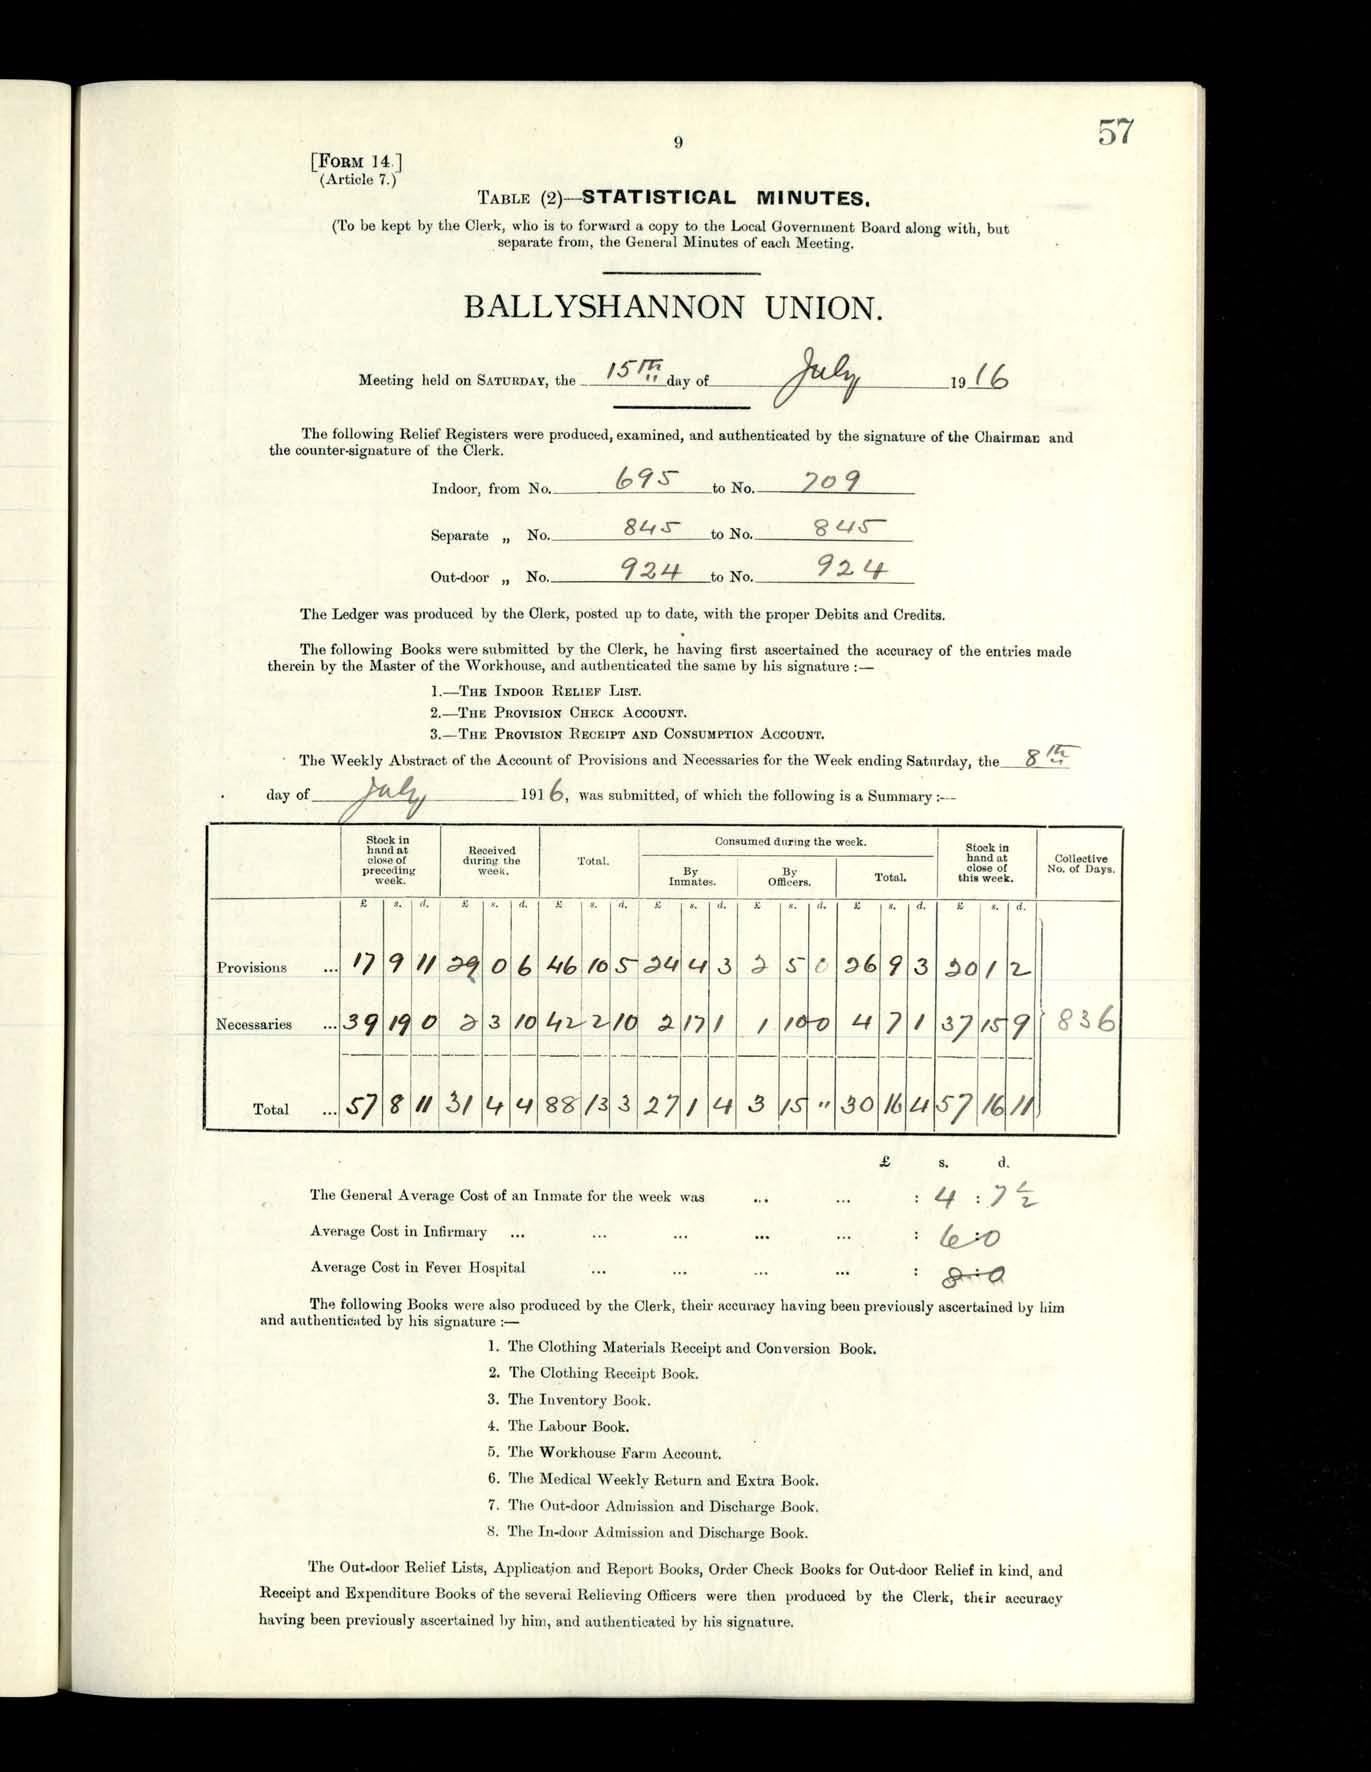 57
9
[FORM 14.]
(Article 7.)
TABLE (2)—STATISTICAL MINUTES.
(To be kept by the Clerk, who is to forward a copy to the Local Government Board along with, but
separate from, the General Minutes of each Meeting.
BALLYSHANNON UNION.
Meeting held on SATURDAY, the 15th day of July 1916
The following Relief Registers were produced, examined, and authenticated by the signature of the Chairman and
the counter-signature of the Clerk.
Indoor, from No. 695 to No. 709
Separate „ No. 845 to No. 845
Out-door „ No. 924 to No. 924
The Ledger was produced by the Clerk, posted up to date, with the proper Debits and Credits.
The following Books were submitted by the Clerk, he having first ascertained the accuracy of the entries made
therein by the Master of the Workhouse, and authenticated the same by his signature :—
1.—THE INDOOR RELIEF LIST.
2.—THE PROVISION CHECK ACCOUNT.
3.—THE PROVISION RECEIPT AND CONSUMPTION ACCOUNT.
The Weekly Abstract of the Account of Provisions and Necessaries for the Week ending Saturday, the 8th
day of July 1916, was submitted, of which the following is a Summary :—
Stock in hand at close of preceding week. Received during the week. Total. Consumed during the week. Stock in hand at close of this week. Collective No. of Days.
By Inmates. By Officers. Total.
£ s. d. £ s. d. £ s. d. £ s. d. £ s. d. £ s. d. £ s. d.
Provisions ... 17 9 11 29 0 6 46 10 5 24 4 3 2 5 0 26 9 3 20 1 2
Necessaries ... 39 19 0 2 3 10 42 2 10 2 17 1 1 10 0 4 7 1 37 15 9 836
Total ... 57 8 11 31 4 4 88 13 3 27 1 4 3 15 " 30 16 4 57 16 11
£ s. d.
The General Average Cost of an Inmate for the week was ... ... : 4 : 7½
Average Cost in Infirmary ... ... ... ... ... : 6:0
Average Cost in Fever Hospital ... ... ... ... : 8:0
The following Books were also produced by the Clerk, their accuracy having been previously ascertained by him
and authenticated by his signature :—
1. The Clothing Materials Receipt and Conversion Book.
2. The Clothing Receipt Book.
3. The Inventory Book.
4. The Labour Book.
5. The Workhouse Farm Account.
6. The Medical Weekly Return and Extra Book.
7. The Out-door Admission and Discharge Book.
8. The In-door Admission and Discharge Book.
The Out-door Relief Lists, Application and Report Books, Order Check Books for Out-door Relief in kind, and
Receipt and Expenditure Books of the several Relieving Officers were then produced by the Clerk, their accuracy
having been previously ascertained by him, and authenticated by his signature.